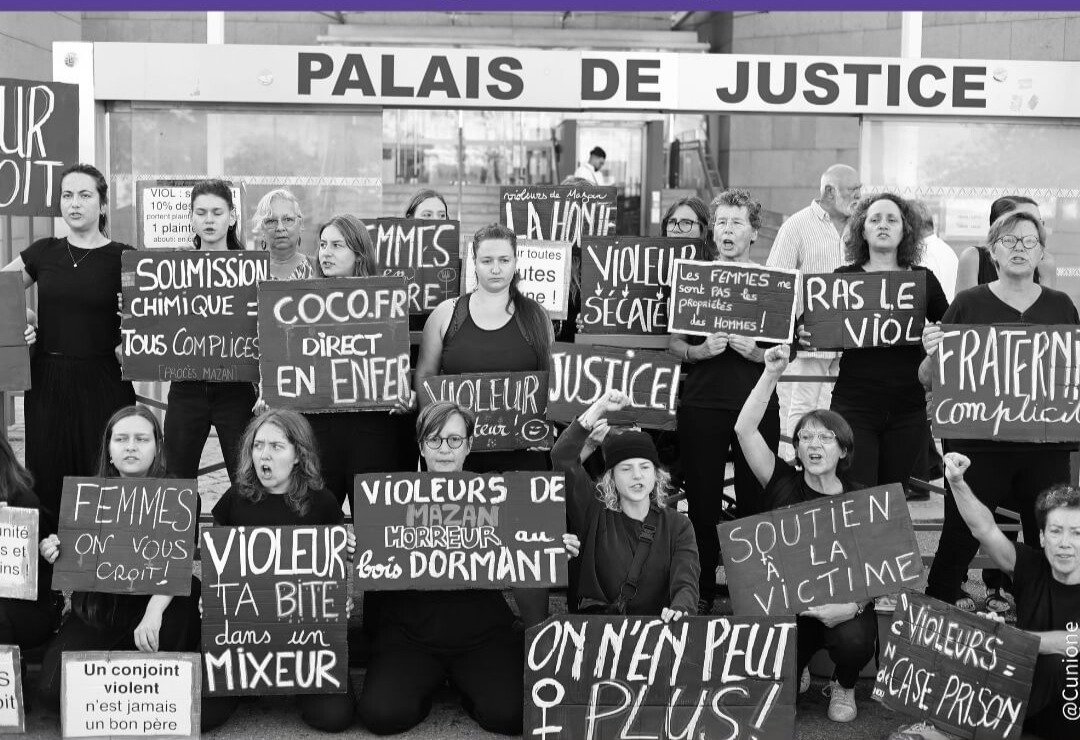 PALAIS DE JUSTICE
UR
OIT
VIOL :
10% des
portent plainte
1 plainte
SOUMISSION
CHIMIQUE =
TOUS COMPLICES
[PROCÈS MAZAN]
COCO.FR
DIRECT
EN ENFER
EMMES
en
RE
violeurs de Mazan
LA HONTE
toutes
utes
ne !
VIOLEUR
SÉCATE
Les FEMMES ne
sont PAS les
propriétés
des HOMMES !
RAS LE
VIOL
FRATERNI
complicit
VIOLEUR
teur !
JUSTICE!
unité
s et
ins !
FEMMES
ON VOUS
CROIT!
VIOLEUR
TA BITE
dans un
MIXEUR
VIOLEURS DE
MAZAN
HORREUR au
bois DORMANT
SOUTIEN
À LA
VICTIME
ON N'EN PEUT
PLUS!
VIOLEURS =
CASE PRISON
S
oit
Un conjoint
violent
n'est jamais
un bon père
@Cunione